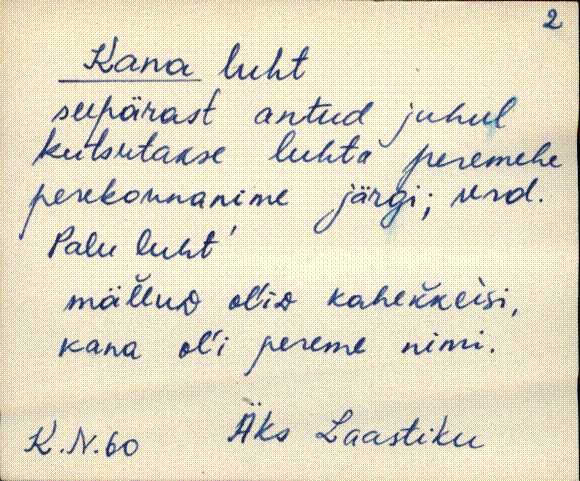 2
Kana luht
seepärast antud juhul
kutsutakse luhta peremehe
perekonnanime järgi; vrd.
Palu luht'
ol'id
kana ol'i pereme nimi.
K.N. 60 Äks Laastiku